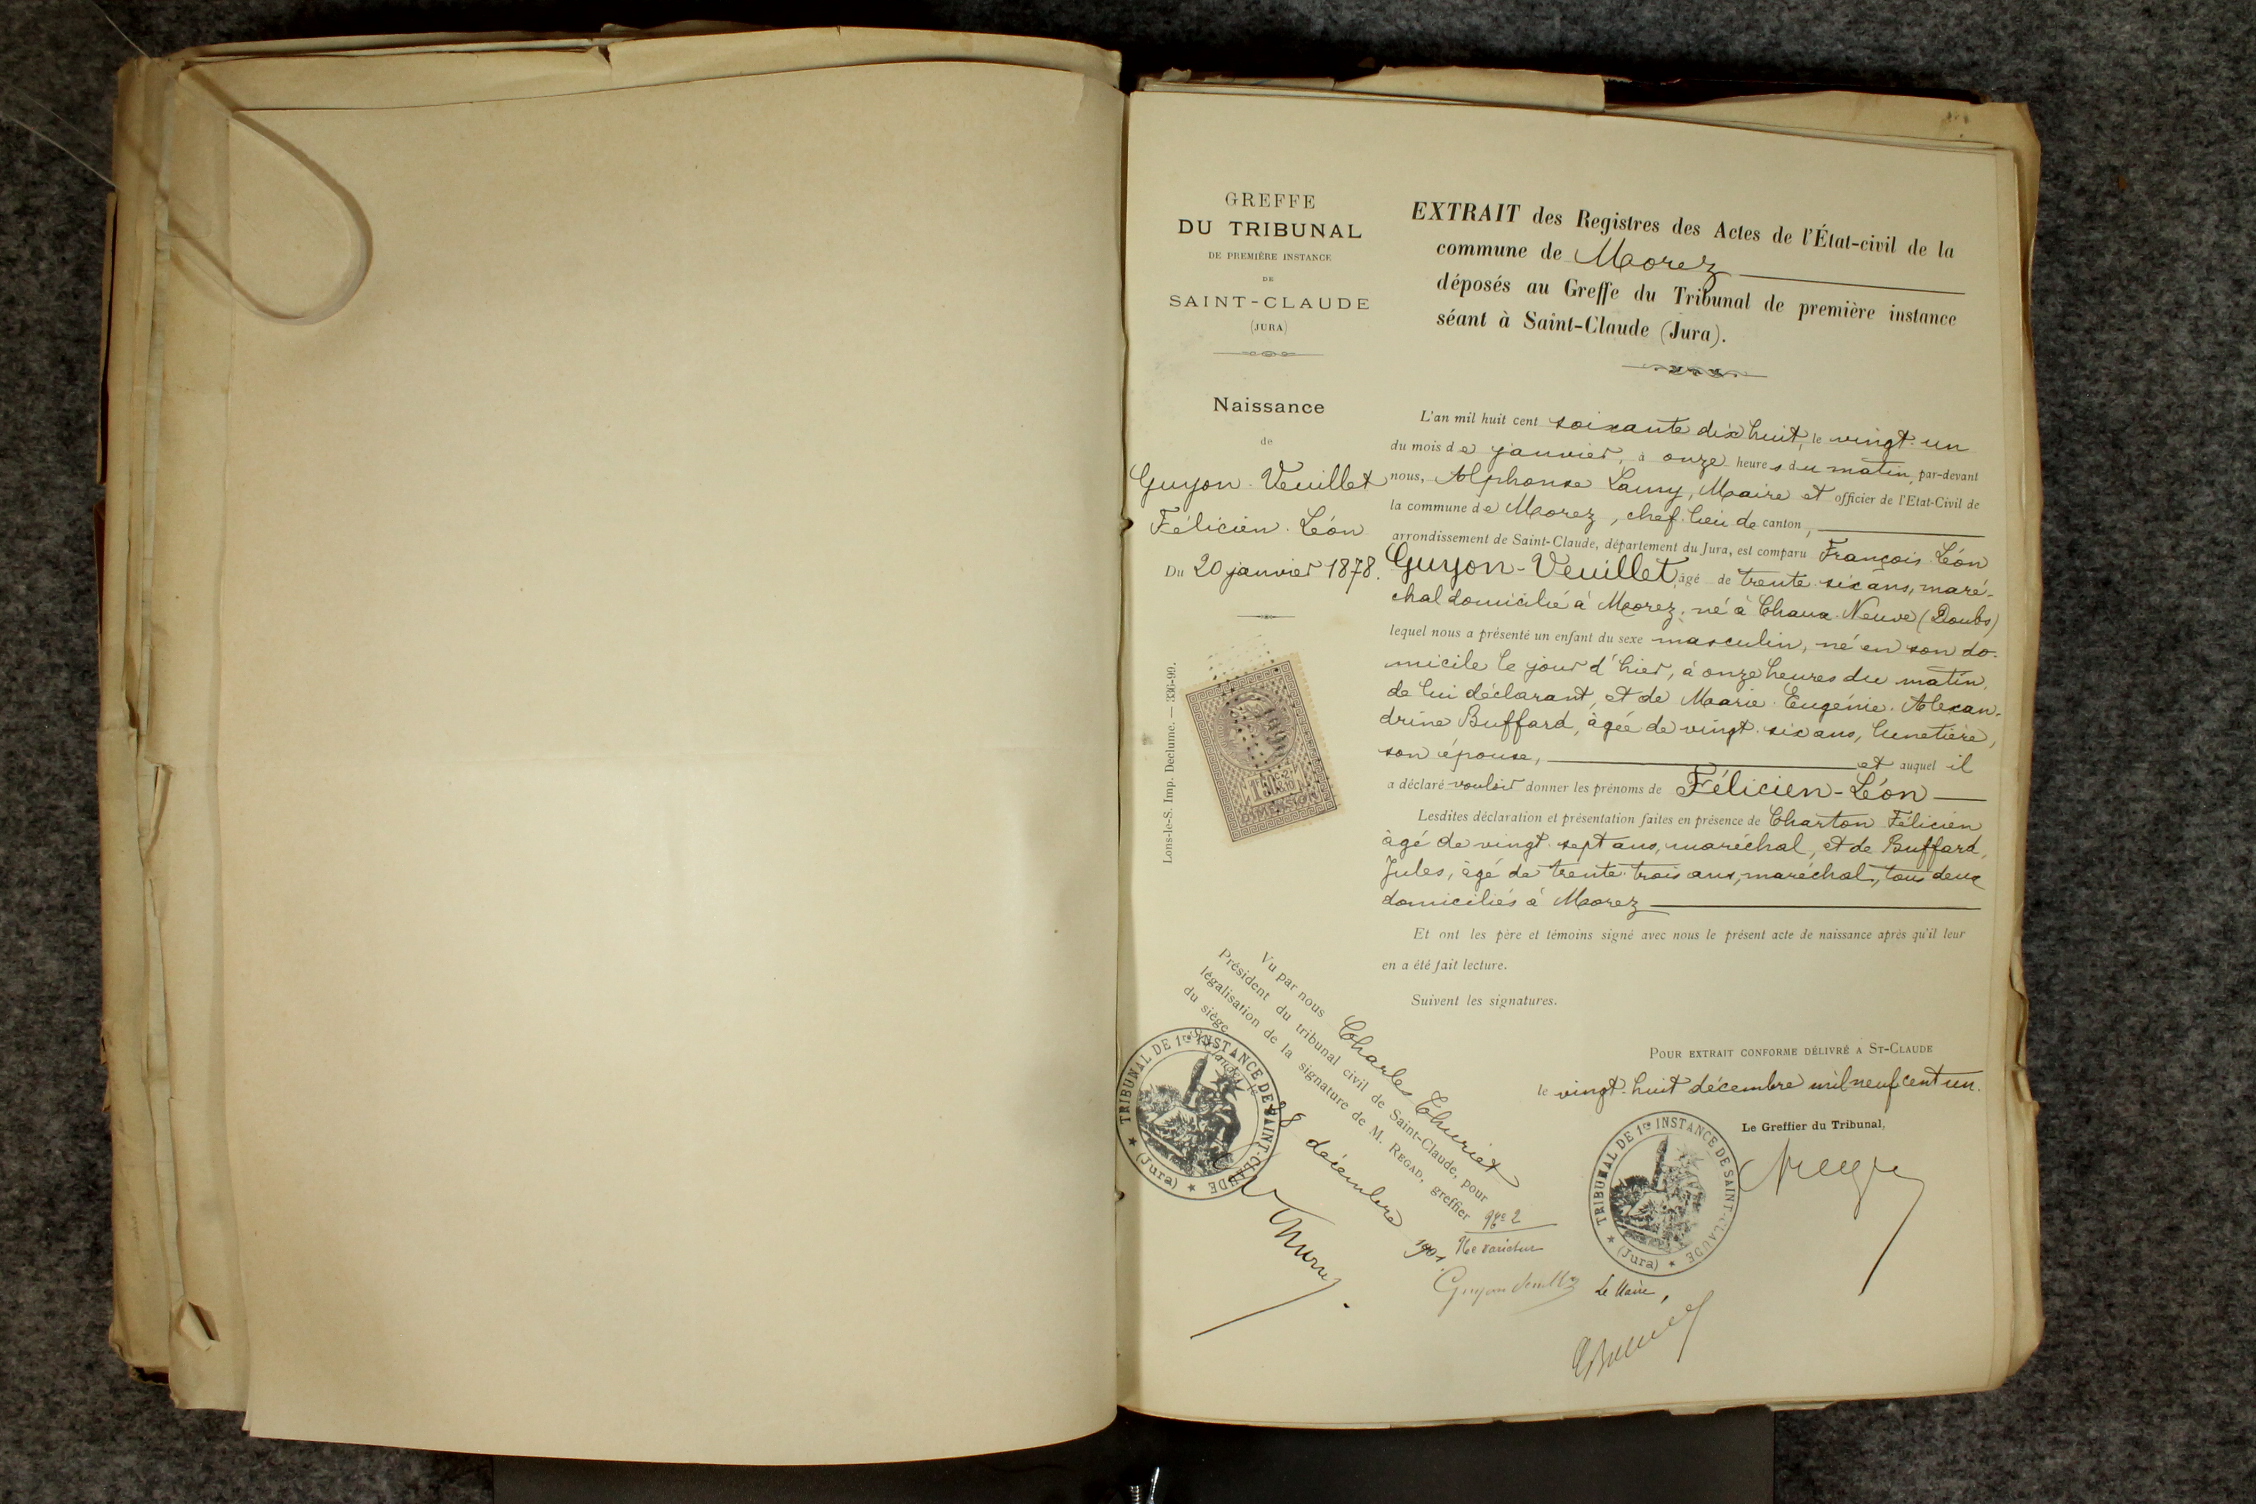 GREFFE
DU TRIBUNAL
DE PREMIÈRE INSTANCE
DE
SAINT-CLAUDE
(JURA)
Naissance
de
Guyon-Veuillet
Félicien-Léon
Du 20 janvier 1878.
Lons-le-S. Imp. Declume. — 336-99.
EXTRAIT des Registres des Actes de l'État-civil de la
commune de Morez
déposés au Greffe du Tribunal de première instance
séant à Saint-Claude (Jura).
L'an mil huit cent soixante dix huit, le vingt-un
du mois de janvier, à onze heures du matin, par-devant
nous, Alphonse Lamy, Maire et officier de l'Etat-Civil de
la commune de Morez, chef-lieu de canton,
arrondissement de Saint-Claude, département du Jura, est comparu François-Léon
Guyon-Veuillet, âgé de trente-six ans, maré-
chal domicilié à Morez, né à Chaux-Neuve (Doubs)
lequel nous a présenté un enfant du sexe masculin, né en son do-
micile le jour d'hier, à onze heures du matin,
de lui déclarant, et de Marie-Eugénie-Alexan-
drine Buffard, âgée de vingt-six ans, lunetière,
son épouse, et auquel il
a déclaré vouloir donner les prénoms de Félicien-Léon
Lesdites déclaration et présentation faites en présence de Charton Félicien
âgé de vingt-sept ans, maréchal, et de Buffard,
Jules, âgé de trente-trois ans, maréchal, tous deux
domiciliés à Morez
Et ont les père et témoins signé avec nous le présent acte de naissance après qu'il leur
en a été fait lecture.
Suivent les signatures.
POUR EXTRAIT CONFORME DÉLIVRÉ A ST-CLAUDE
le vingt-huit décembre mil neuf cent un.
Le Greffier du Tribunal,
TRIBUNAL DE 1re INSTANCE DE SAINT-CLAUDE
(Jura)
Vu par nous Charles Thuriet
Président du tribunal civil de Saint-Claude, pour
légalisation de la signature de M. REGAD, greffier
du siège
St-Claude, le
28 décembre 1901.
TRIBUNAL DE 1re INSTANCE DE SAINT-CLAUDE
(Jura)
Guyon Veuillet
Le Maire,